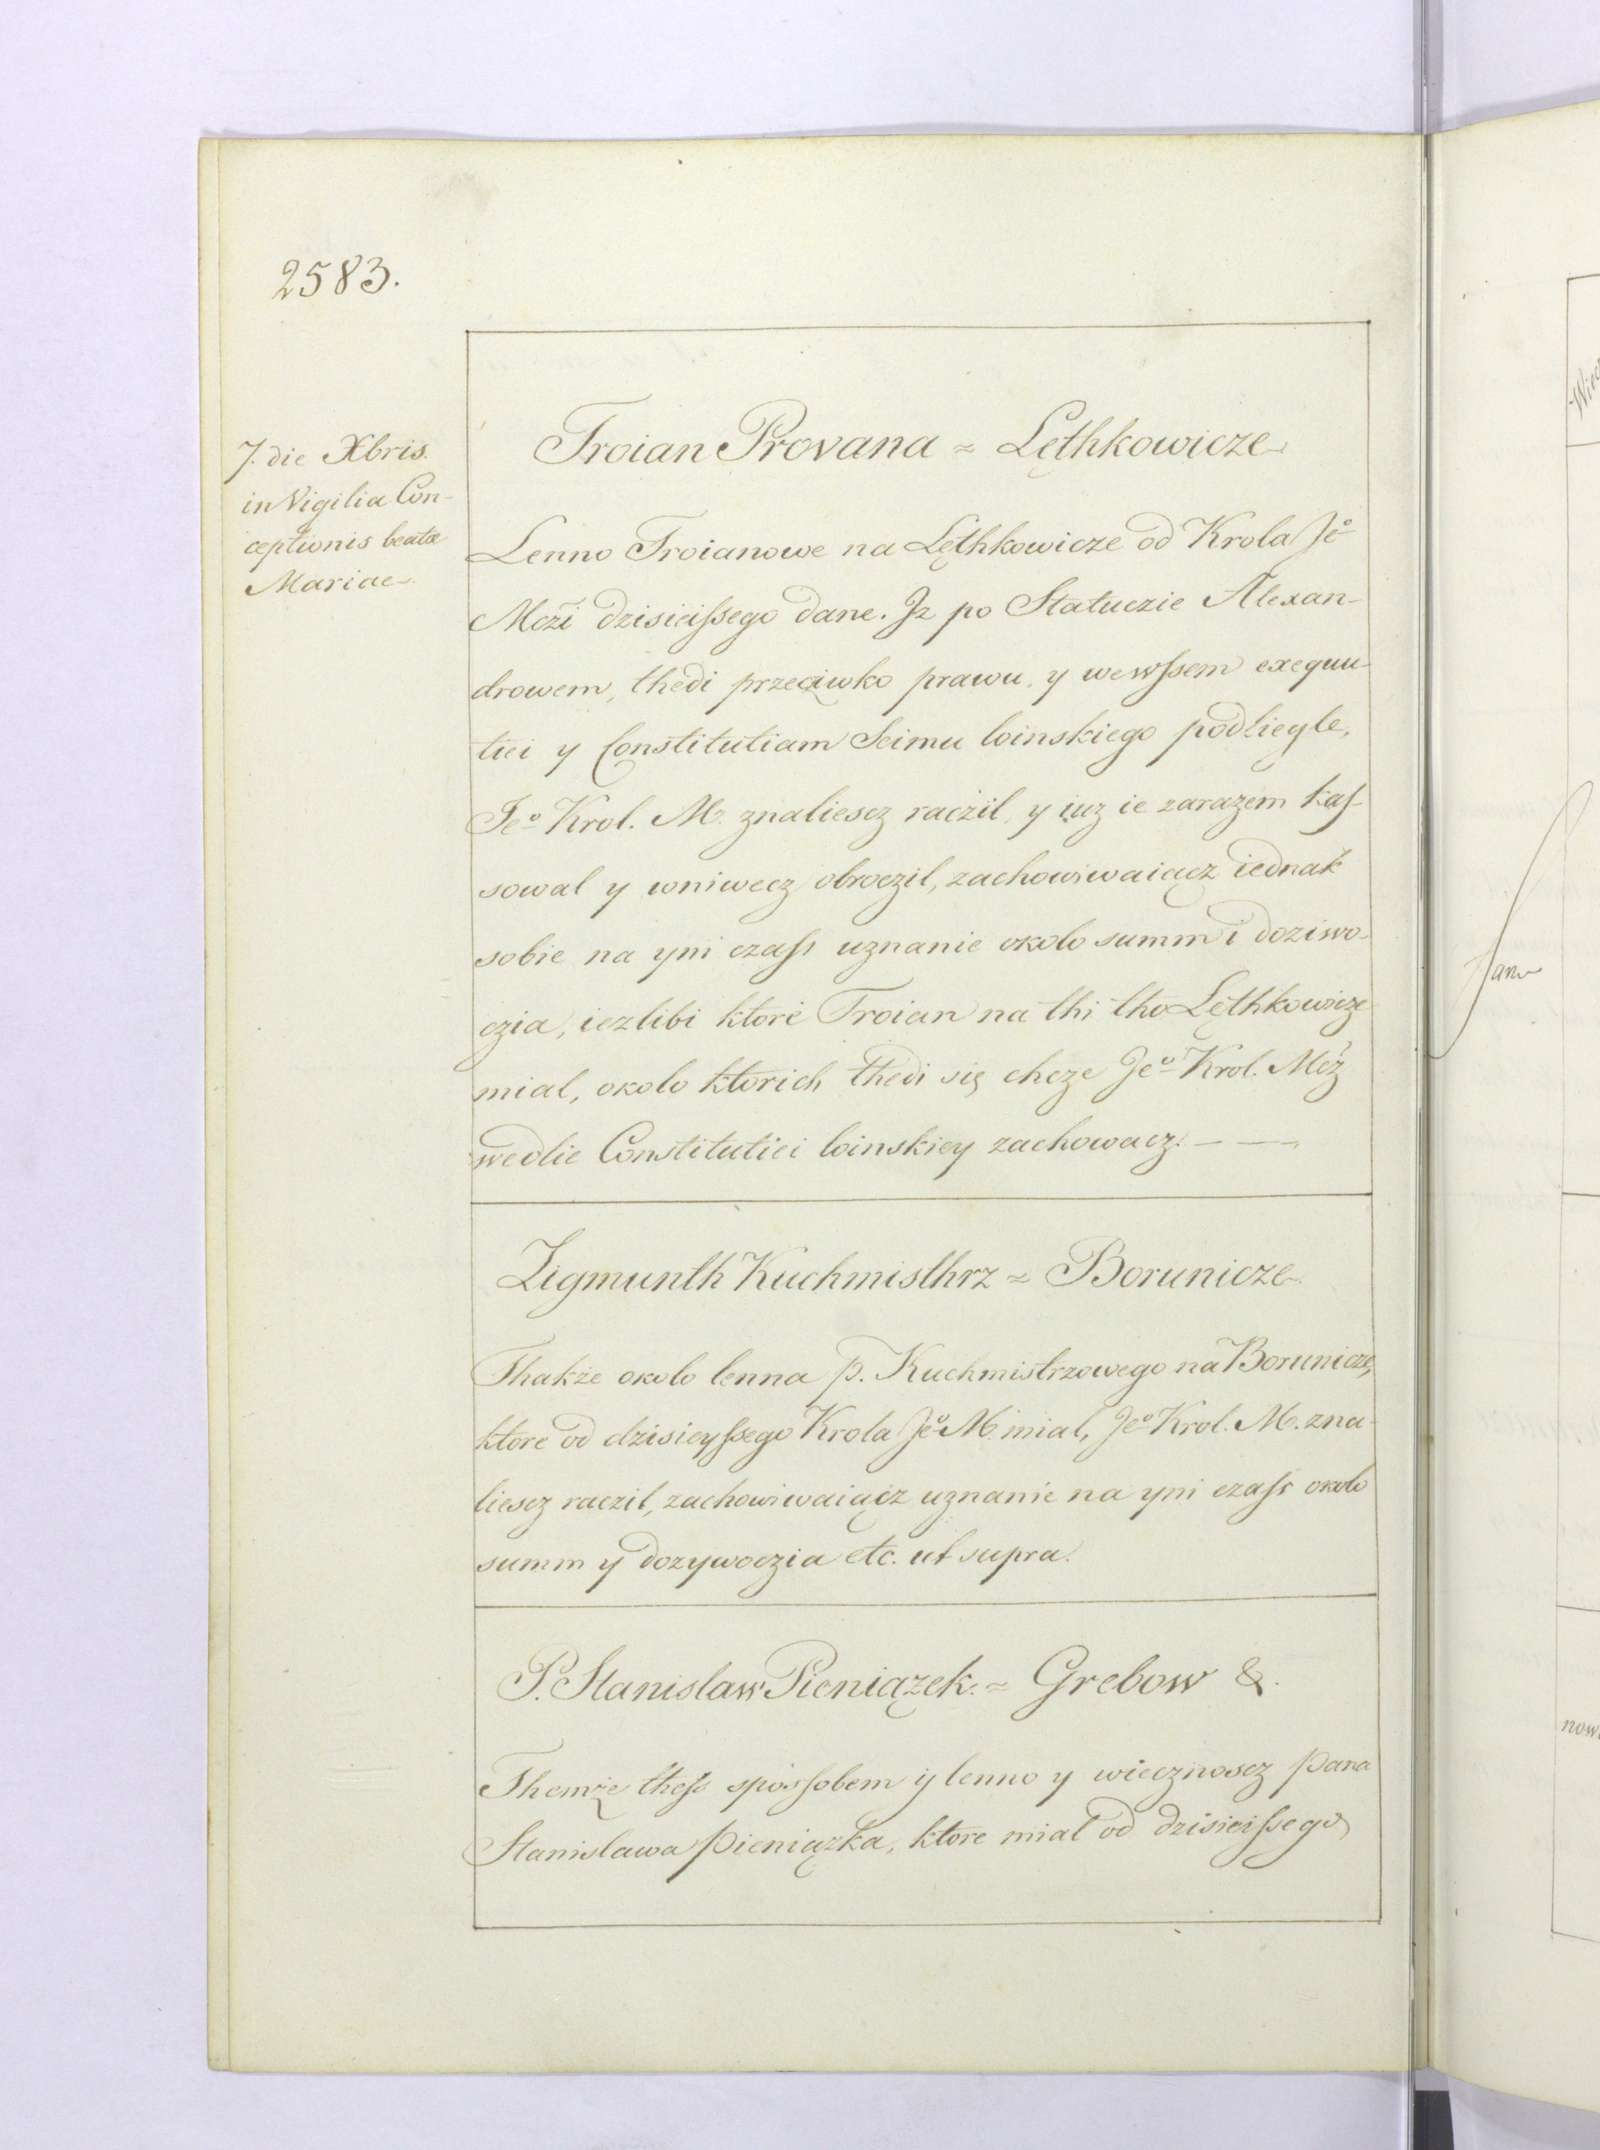 2583.
7. die Xbris.
in Vigilia Con-
ceptionis beatæ
Mariae.
Troian Provana ~ Lęthkowicze
Lenno Troianowe na Lęthkowicze od Krola Jeº
Mczi dzisieiſsego dane. Iz po Statuczie Alexan-
drowem, thedi przeciwko prawu, y wewſsem exequu-
tiei y Constitutiam Seimu loinskiego podliegle,
Jeº Krol. M. znaliescz raczil, y iuz ie zarazem kaſ-
sowal y wniwecz obroczil, zachowiwaiącz iednak
sobie na yni czaſs uznanie okolo summ i doziwo-
czia, iezlibi ktore Troian na thi tho Lęthkowicze
mial, okolo ktorich thedi się chcze Jeº Krol. Mcz
wedlie Constitutiei loinskiey zachowacz. — — —
Zigmunth Kuchmisthrz ~ Borunicze
Thakże okolo lenna p. Kuchmistrzowego na Borunicze,
ktore od dzisieyſsego Krola Jeº M. mial, Jeº Krol. M. zna-
liescz raczil, zachowiwaiącz uznanie na yni czaſs okolo
summ y dozywoczia etc. ut supra.
P. Stanislaw Pieniązek. ~ Grebow &.
Themże theſs sposſobem ij lenno y wiecznoscz Pana
Stanislawa Pieniązka, ktore mial od dzisieiſsego